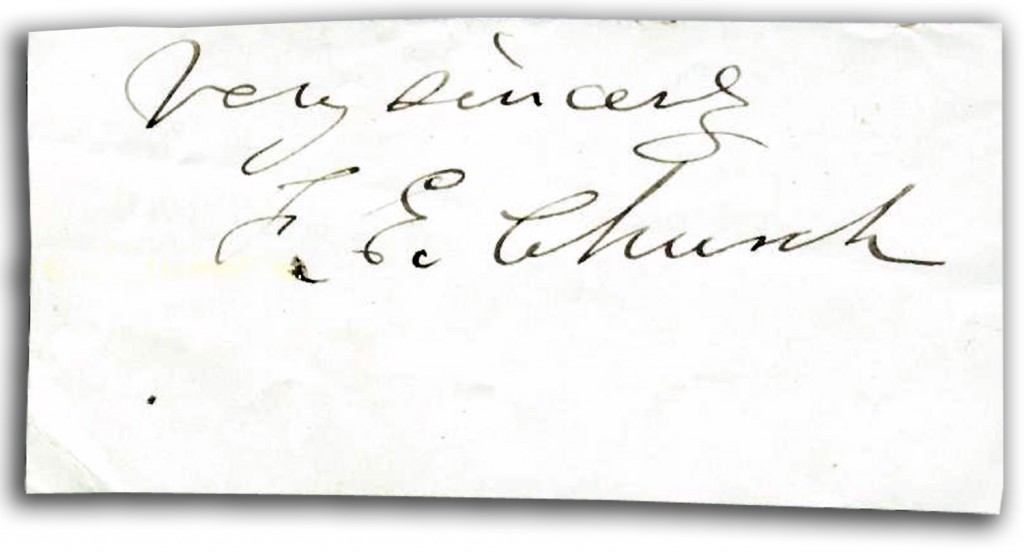 Very sincerely
F. E. Church